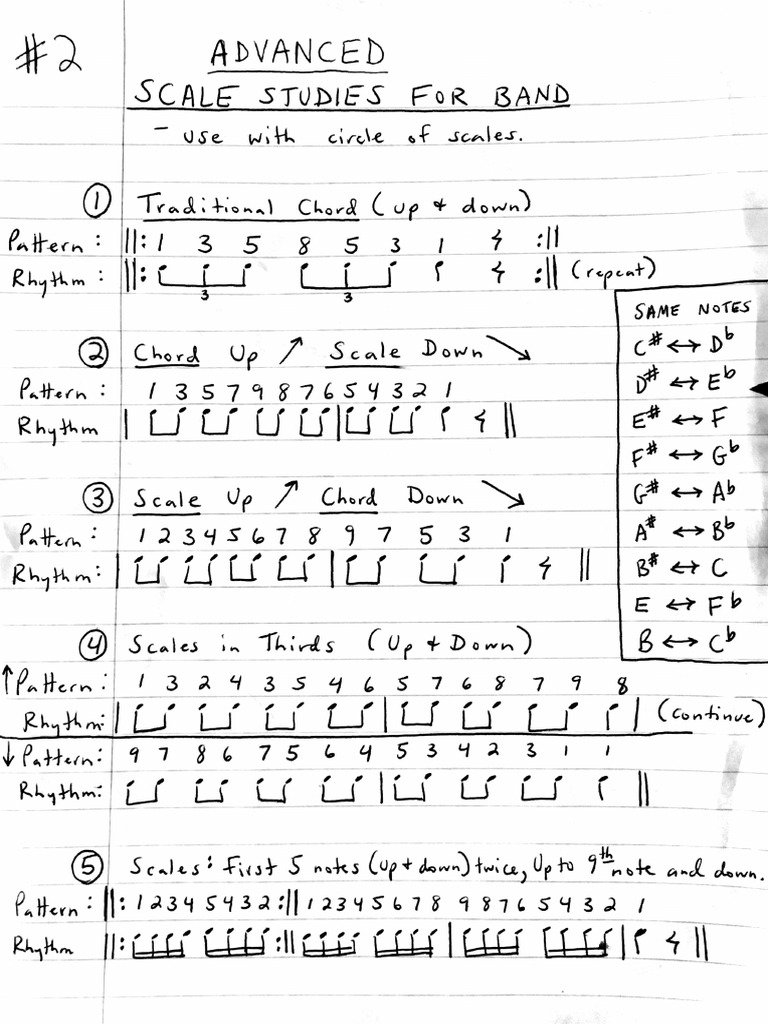 #2
ADVANCED
SCALE STUDIES FOR BAND
- use with circle of scales.
① Traditional Chord (up + down)
Pattern: ||: 1 3 5 8 5 3 1 𝄽 :||
Rhythm: ||: 3 3 𝄽 :|| (repeat)
② Chord Up ↗ Scale Down ↘
Pattern: 1 3 5 7 9 8 7 6 5 4 3 2 1
Rhythm | | 𝄽 ||
③ Scale Up ↗ Chord Down ↘
Pattern: 1 2 3 4 5 6 7 8 9 7 5 3 1
Rhythm: | | 𝄽 ||
④ Scales in Thirds (Up + Down)
↑Pattern: 1 3 2 4 3 5 4 6 5 7 6 8 7 9 8
Rhythm: | | | (continue)
↓Pattern: 9 7 8 6 7 5 6 4 5 3 4 2 3 1 1
Rhythm: | ||
⑤ Scales: First 5 notes (up + down) twice, Up to 9th note and down.
Pattern: ||: 1 2 3 4 5 4 3 2 :|| 1 2 3 4 5 6 7 8 9 8 7 6 5 4 3 2 1
Rhythm ||: :|| | | 𝄽 ||
SAME NOTES
C# ↔ Db
D# ↔ Eb
E# ↔ F
F# ↔ Gb
G# ↔ Ab
A# ↔ Bb
B# ↔ C
E ↔ Fb
B ↔ Cb